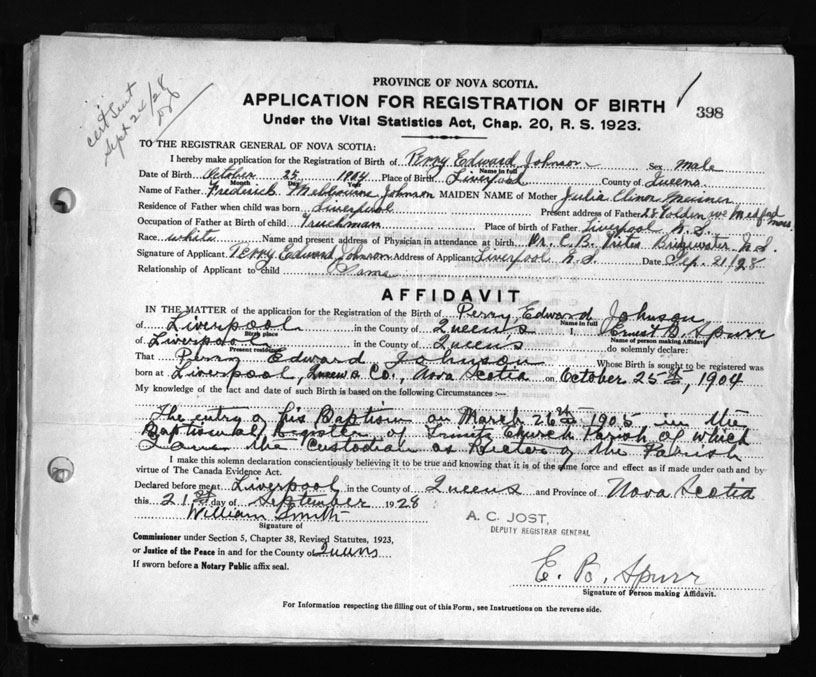 cert sent
Sept 24/28
PROVINCE OF NOVA SCOTIA.
APPLICATION FOR REGISTRATION OF BIRTH
398
Under the Vital Statistics Act, Chap. 20, R. S. 1923.
TO THE REGISTRAR GENERAL OF NOVA SCOTIA:
I hereby make application for the Registration of Birth of Perry Edward Johnson Sex male
Name in full
Date of Birth October 25 1904 Place of Birth Liverpool County of Queens
Month Day Year
Name of Father Frederick Melbourne Johnson MAIDEN NAME of Mother Julia Elinor
Residence of Father when child was born Liverpool Present address of Father 28 Golden ave Medford Mass.
Occupation of Father at Birth of child Truckman Place of birth of Father Liverpool N.S.
Race white Name and present address of Physician in attendance at birth Dr. C. B. Bridgwater N.S.
Signature of Applicant Perry Edward Johnson Address of Applicant Liverpool N.S. Date Sep. 21/28
Relationship of Applicant to Child Same
AFFIDAVIT
IN THE MATTER of the application for the Registration of the Birth of Perry Edward Johnson
Name in full
of Liverpool in the County of Queens I, Ernest B. Spurr
Birth place Name of person making Affidavit
of Liverpool in the County of Queens do solemnly declare:
Present residence
That Perry Edward Johnson Whose Birth is sought to be registered was
born at Liverpool, Queens Co., Nova Scotia on October 25th, 1904
My knowledge of the fact and date of such Birth is based on the following Circumstances :—
The entry of his Baptism on March 26th 1905 in the
Baptismal Register of Trinity Church Parish of which
I am the Custodian as Rector of the Parish
I make this solemn declaration conscientiously believing it to be true and knowing that it is of the same force and effect as if made under oath and by
virtue of The Canada Evidence Act.
Declared before me at Liverpool in the County of Queens and Province of Nova Scotia
this 21st day of September 1928
William Smith
Signature of
A. C. JOST,
DEPUTY REGISTRAR GENERAL
Commissioner under Section 5, Chapter 38, Revised Statutes, 1923,
or Justice of the Peace in and for the County of Queens
If sworn before a Notary Public affix seal.
E. B. Spurr
Signature of Person making Affidavit.
For Information respecting the filling out of this Form, see Instructions on the reverse side.